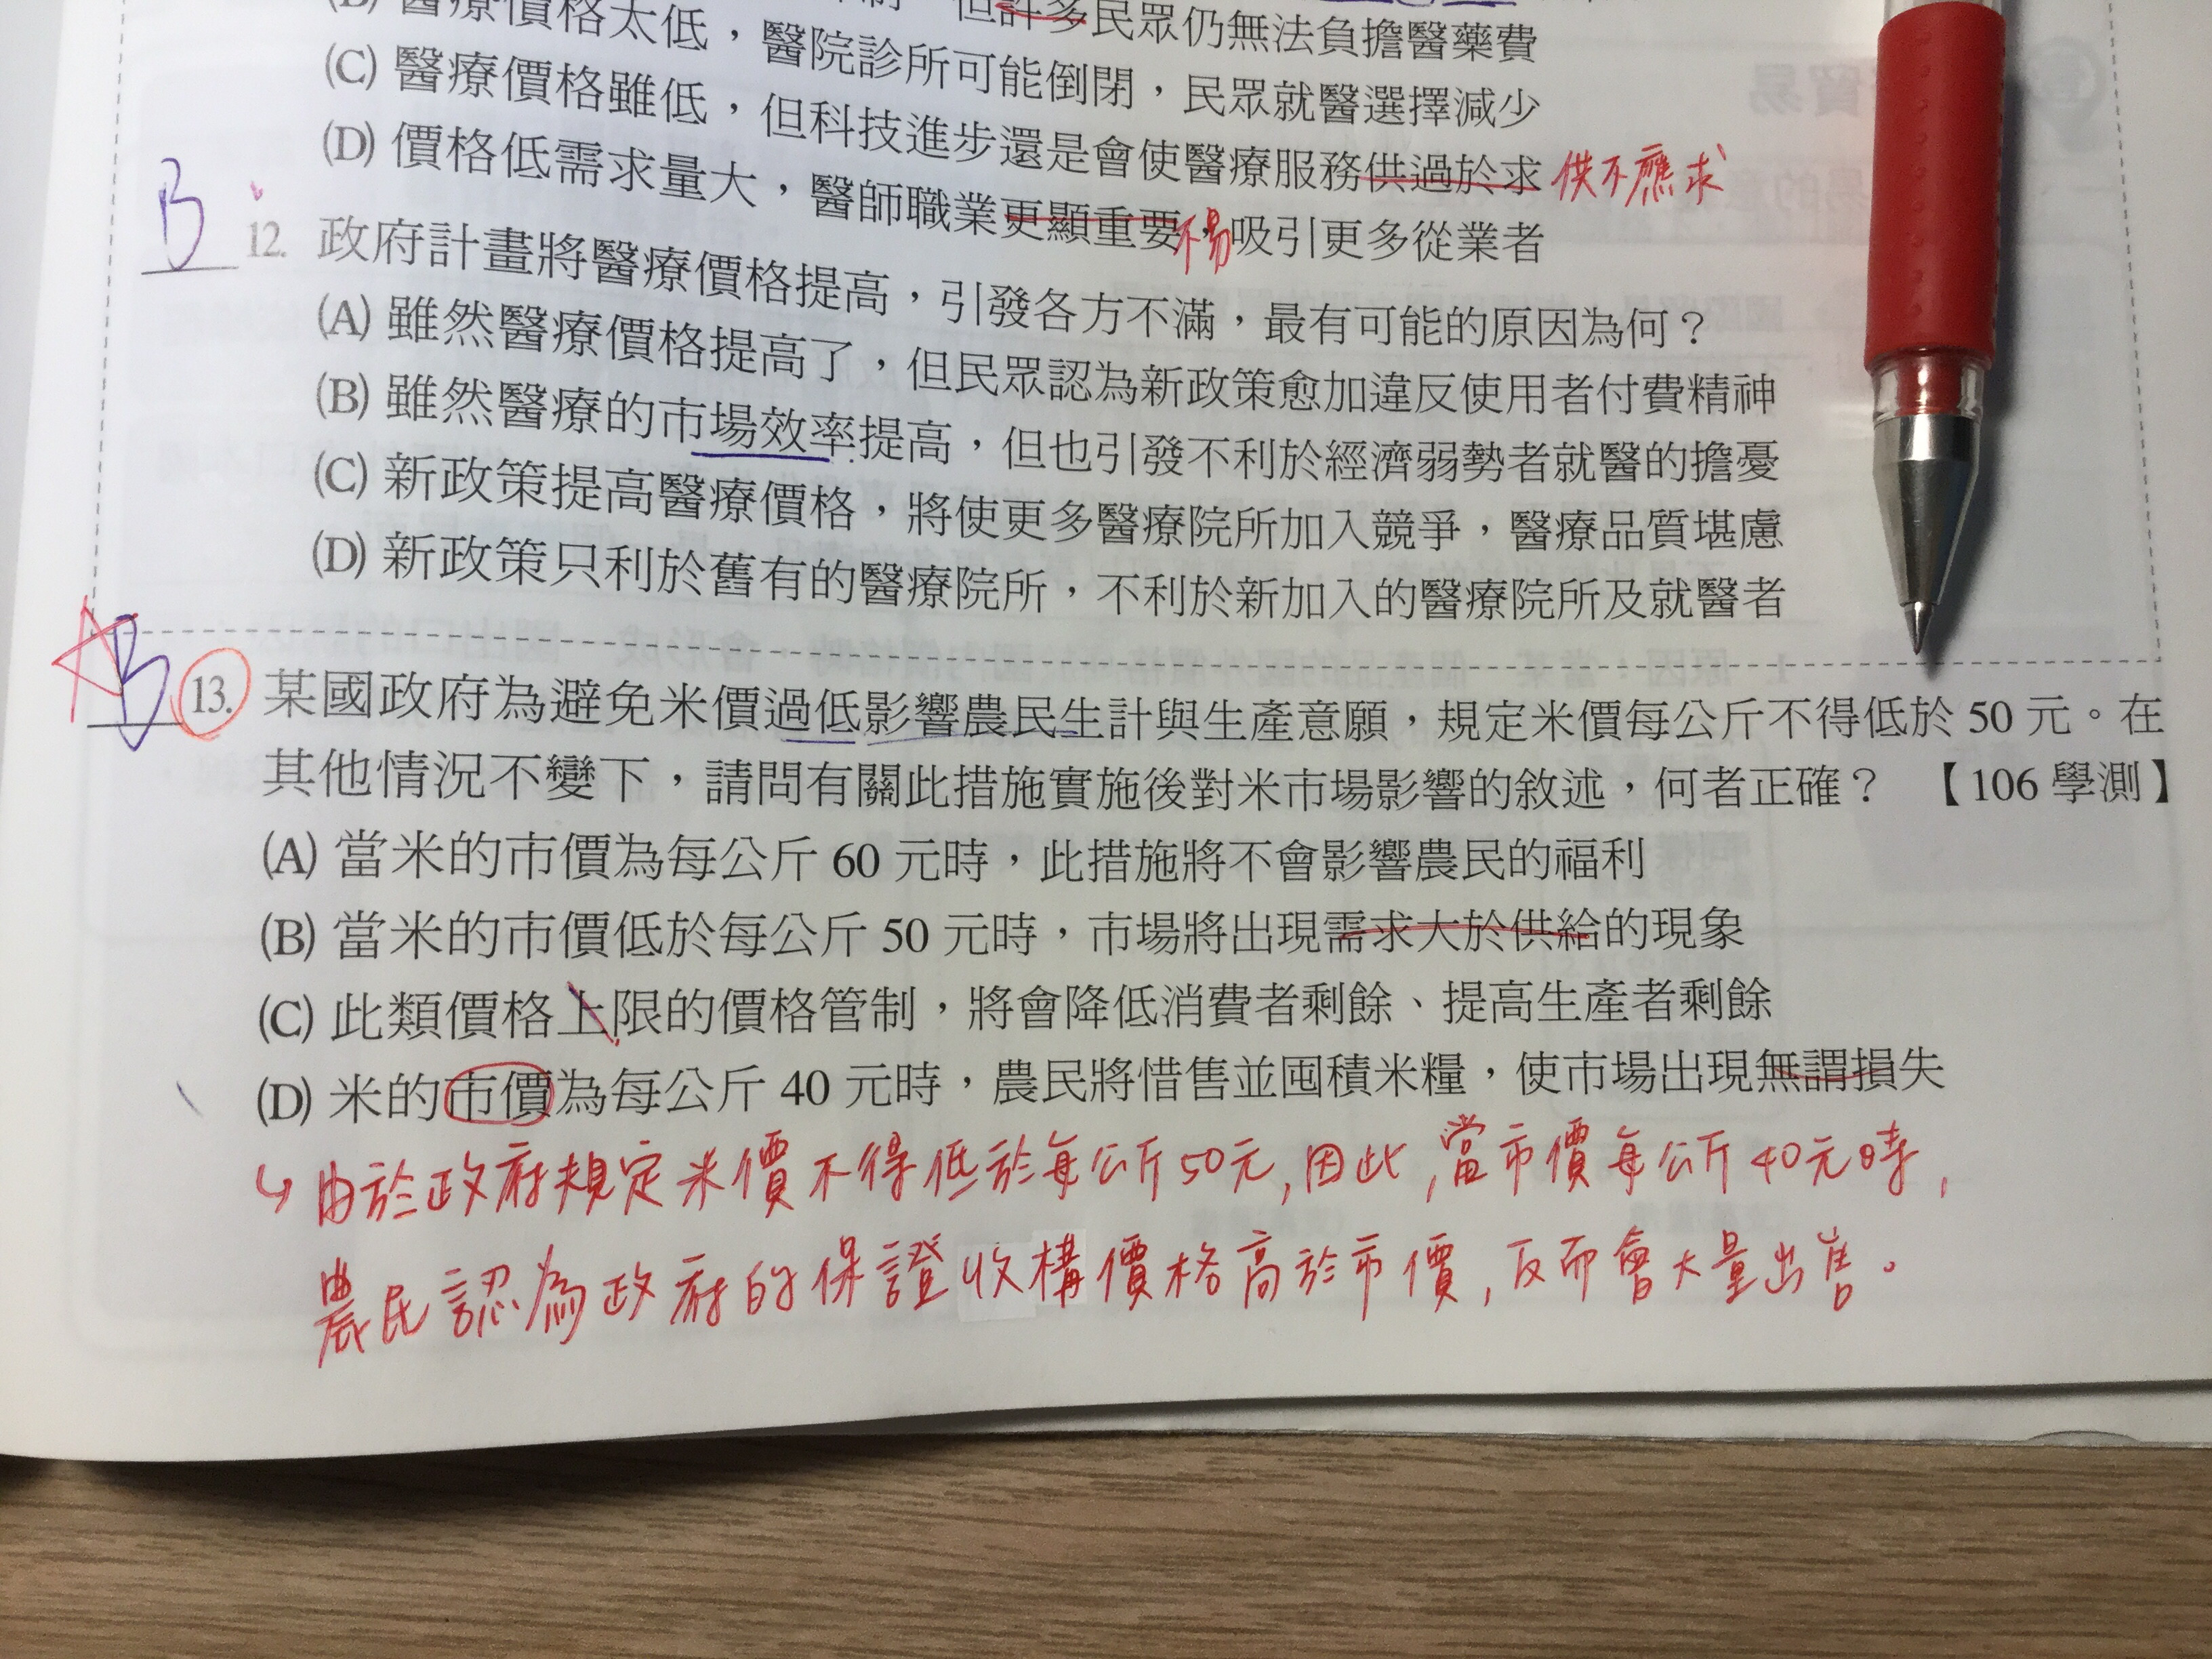 但許多民眾仍無法負擔醫藥費
(B) 醫療價格太低，醫院診所可能倒閉，民眾就醫選擇減少
(C) 醫療價格雖低，但科技進步還是會使醫療服務供過於求 供不應求
(D) 價格低需求量大，醫師職業更顯重要，不易吸引更多從業者
B 12. 政府計畫將醫療價格提高，引發各方不滿，最有可能的原因為何？
(A) 雖然醫療價格提高了，但民眾認為新政策愈加違反使用者付費精神
(B) 雖然醫療的市場效率提高，但也引發不利於經濟弱勢者就醫的擔憂
(C) 新政策提高醫療價格，將使更多醫療院所加入競爭，醫療品質堪慮
(D) 新政策只利於舊有的醫療院所，不利於新加入的醫療院所及就醫者
A B 13. 某國政府為避免米價過低影響農民生計與生產意願，規定米價每公斤不得低於 50 元。在
其他情況不變下，請問有關此措施實施後對米市場影響的敘述，何者正確？ 【106 學測】
(A) 當米的市價為每公斤 60 元時，此措施將不會影響農民的福利
(B) 當米的市價低於每公斤 50 元時，市場將出現需求大於供給的現象
(C) 此類價格上限的價格管制，將會降低消費者剩餘、提高生產者剩餘
(D) 米的市價為每公斤 40 元時，農民將惜售並囤積米糧，使市場出現無謂損失
↳ 由於政府規定米價不得低於每公斤50元，因此，當市價每公斤40元時，
農民認為政府的保證收構價格高於市價，反而會大量出售。